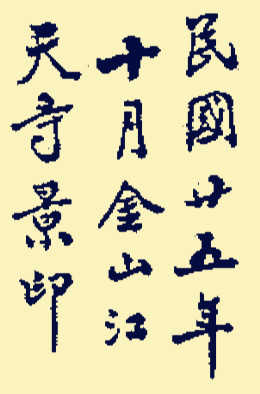 民國廿五年
十月金山江
天寺景印